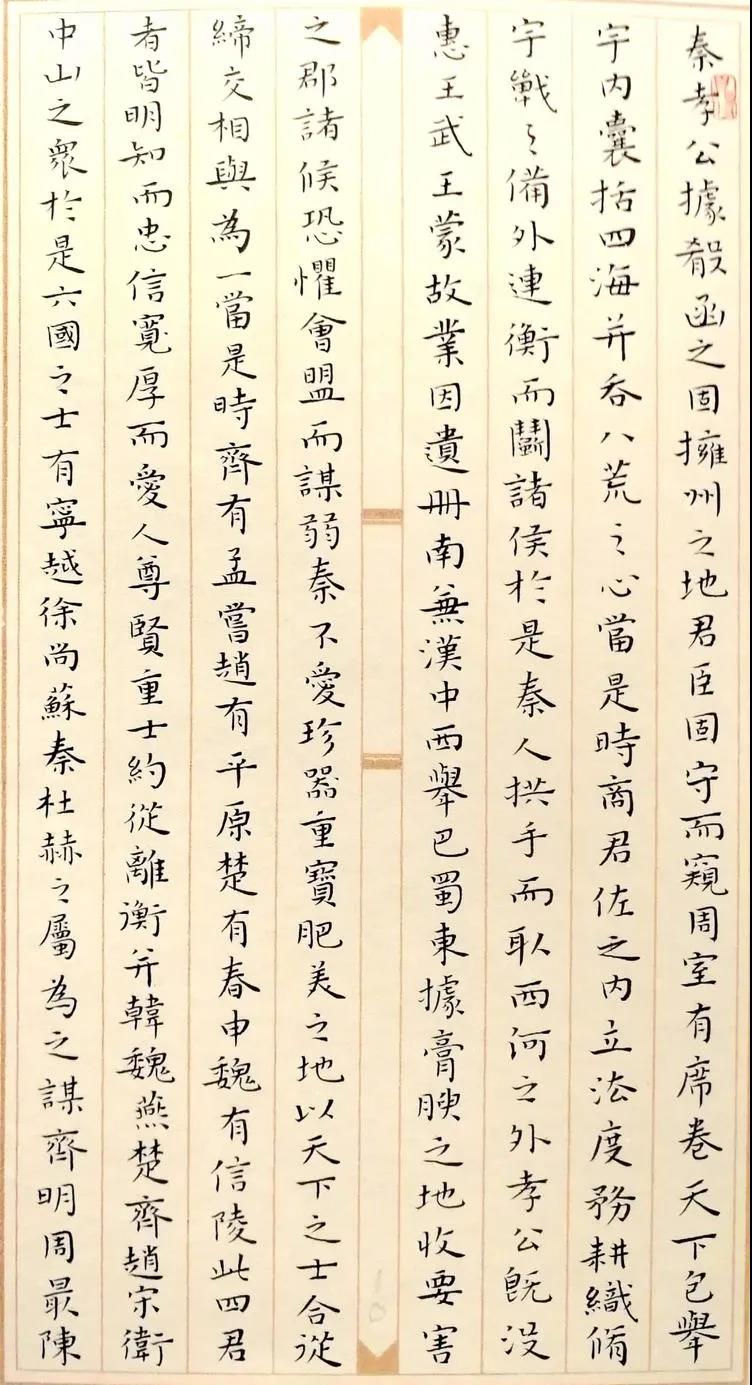 秦孝公據殽函之固擁州之地君臣固守而窺周室有席卷天下包舉
宇內囊括四海并吞八荒之心當是時商君佐之內立法度務耕織脩
宇戰之備外連衡而鬭諸侯於是秦人拱手而取西河之外孝公既沒
惠王武王蒙故業因遺冊南兼漢中西舉巴蜀東據膏腴之地收要害
之郡諸候恐懼會盟而謀弱秦不愛珍器重寶肥美之地以天下之士合從
締交相與為一當是時齊有孟嘗趙有平原楚有春申魏有信陵此四君
者皆明知而忠信寬厚而愛人尊賢重士約從離衡并韓魏燕楚齊趙宋衛
中山之眾於是六國之士有寧越徐尚蘇秦杜赫之屬為之謀齊明周最陳